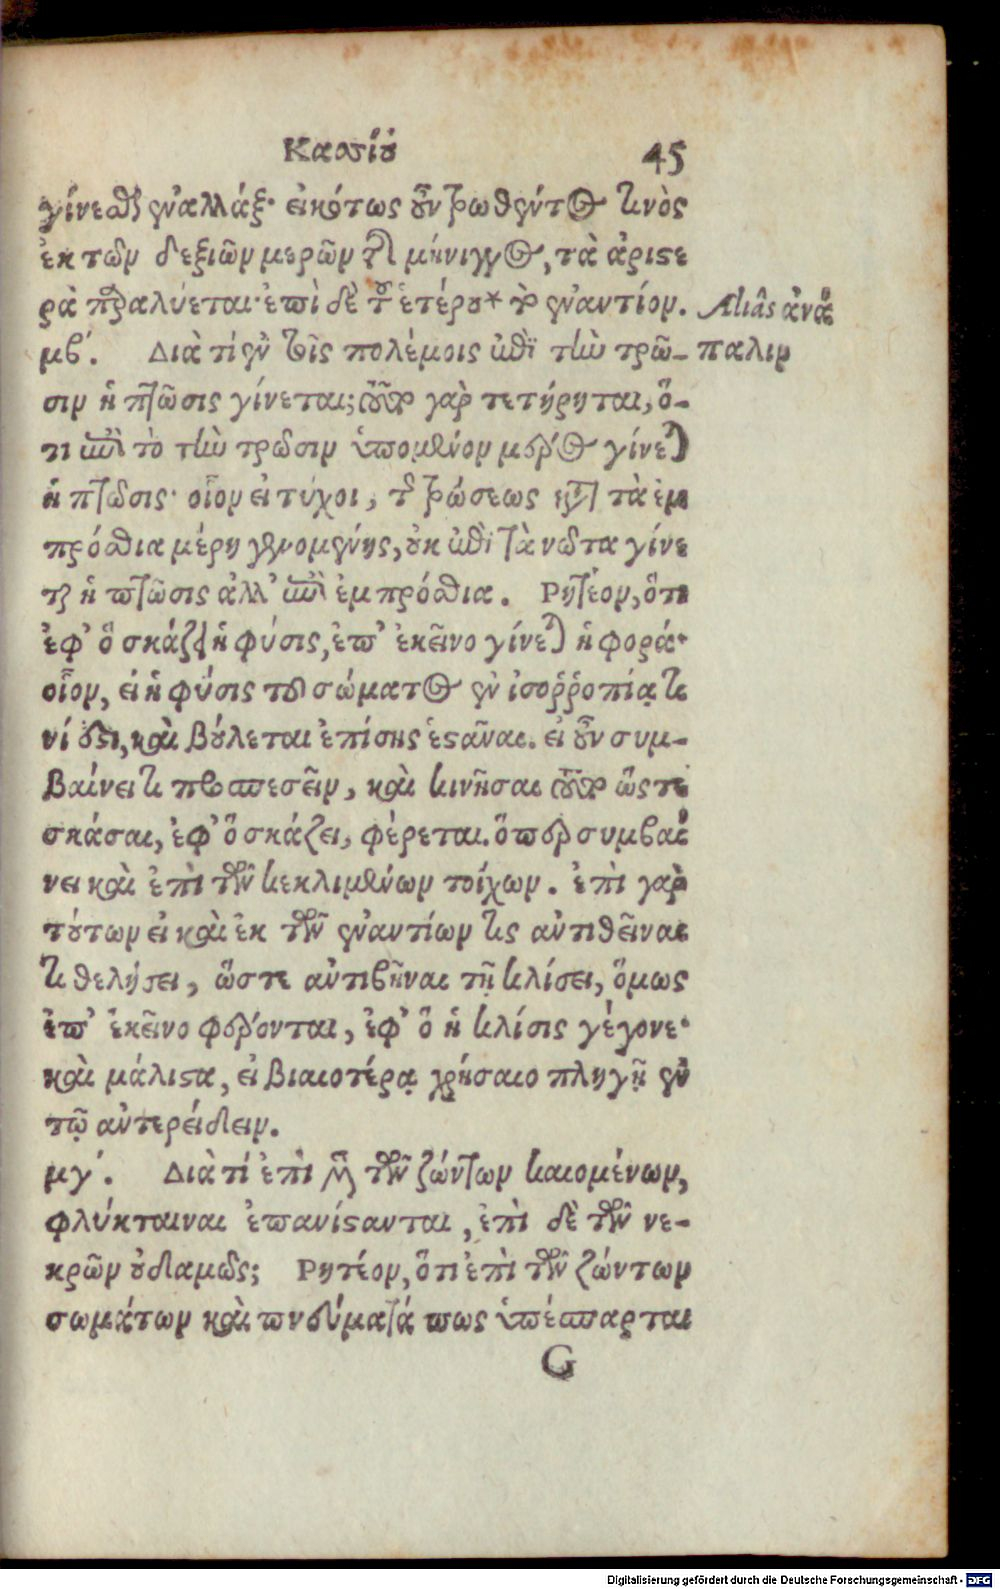 Κασσίου 45
γίνεσθαι ἐναλλάξ· εἰκότως οὖν τρωθέντος τινὸς
ἐκ τῶν δεξιῶν μερῶν τῆς μήνιγγος, τὰ ἀριστε
ρὰ παραλύεται· ἐπὶ δὲ τοῦ ἑτέρου* τὸ ἐναντίον.
Aliâs ἀνά
παλιν
μβ΄. Διὰ τί ἐν τοῖς πολέμοις ἐπὶ τὴν τρῶ-
σιν ἡ πτῶσις γίνεται; τοῦτο γὰρ τετήρηται, ὅ-
τι ἐπὶ τὸ τὴν τρῶσιν ὑπομένον μέρος γίνεται
ἡ πτῶσις· οἷον εἰ τύχοι, τῆς τρώσεως κατὰ τὰ ἐμ
πρόσθια μέρη γενομένης, οὐκ ἐπὶ τὰ νῶτα γίνε
ται ἡ πτῶσις ἀλλ' ἐπὶ ἐμπρόσθια. Ρητέον, ὅτι
ἐφ' ὃ σκάζει ἡ φύσις, ἐπ' ἐκεῖνο γίνεται ἡ φορά·
οἷον, εἰ ἡ φύσις τοῦ σώματος ἐν ἰσοῤῥοπίᾳ τι
νί ἐστι, καὶ βούλεται ἐπίσης ἑστᾶναι. εἰ οὖν συμ-
βαίνει τι προσπεσεῖν, καὶ κινῆσαι τοῦτο ὥστε
σκάσαι, ἐφ' ὃ σκάζει, φέρεται. ὅπερ συμβαί
νει καὶ ἐπὶ τῶν κεκλιμένων τοίχων. ἐπὶ γὰρ
τούτων εἰ καὶ ἐκ τῶν ἐναντίων τις ἀντιθεῖναι
τι θελήσει, ὥστε ἀντιβῆναι τῇ κλίσει, ὅμως
ἐπ' ἐκεῖνο φέρονται, ἐφ' ὃ ἡ κλίσις γέγονε·
καὶ μάλιστα, εἰ βιαιοτέρᾳ χρήσαιο πληγῇ ἐν
τῷ ἀντερείδειν.
μγ΄. Διὰ τί ἐπὶ μὲν τῶν ζώντων καιομένων,
φλύκταιναι ἐπανίστανται, ἐπὶ δὲ τῶν νε-
κρῶν οὐδαμῶς; Ρητέον, ὅτι ἐπὶ τῶν ζώντων
σωμάτων καὶ πνεύματά πως ὑπέσπαρται
G
Digitalisierung gefördert durch die Deutsche Forschungsgemeinschaft - DFG